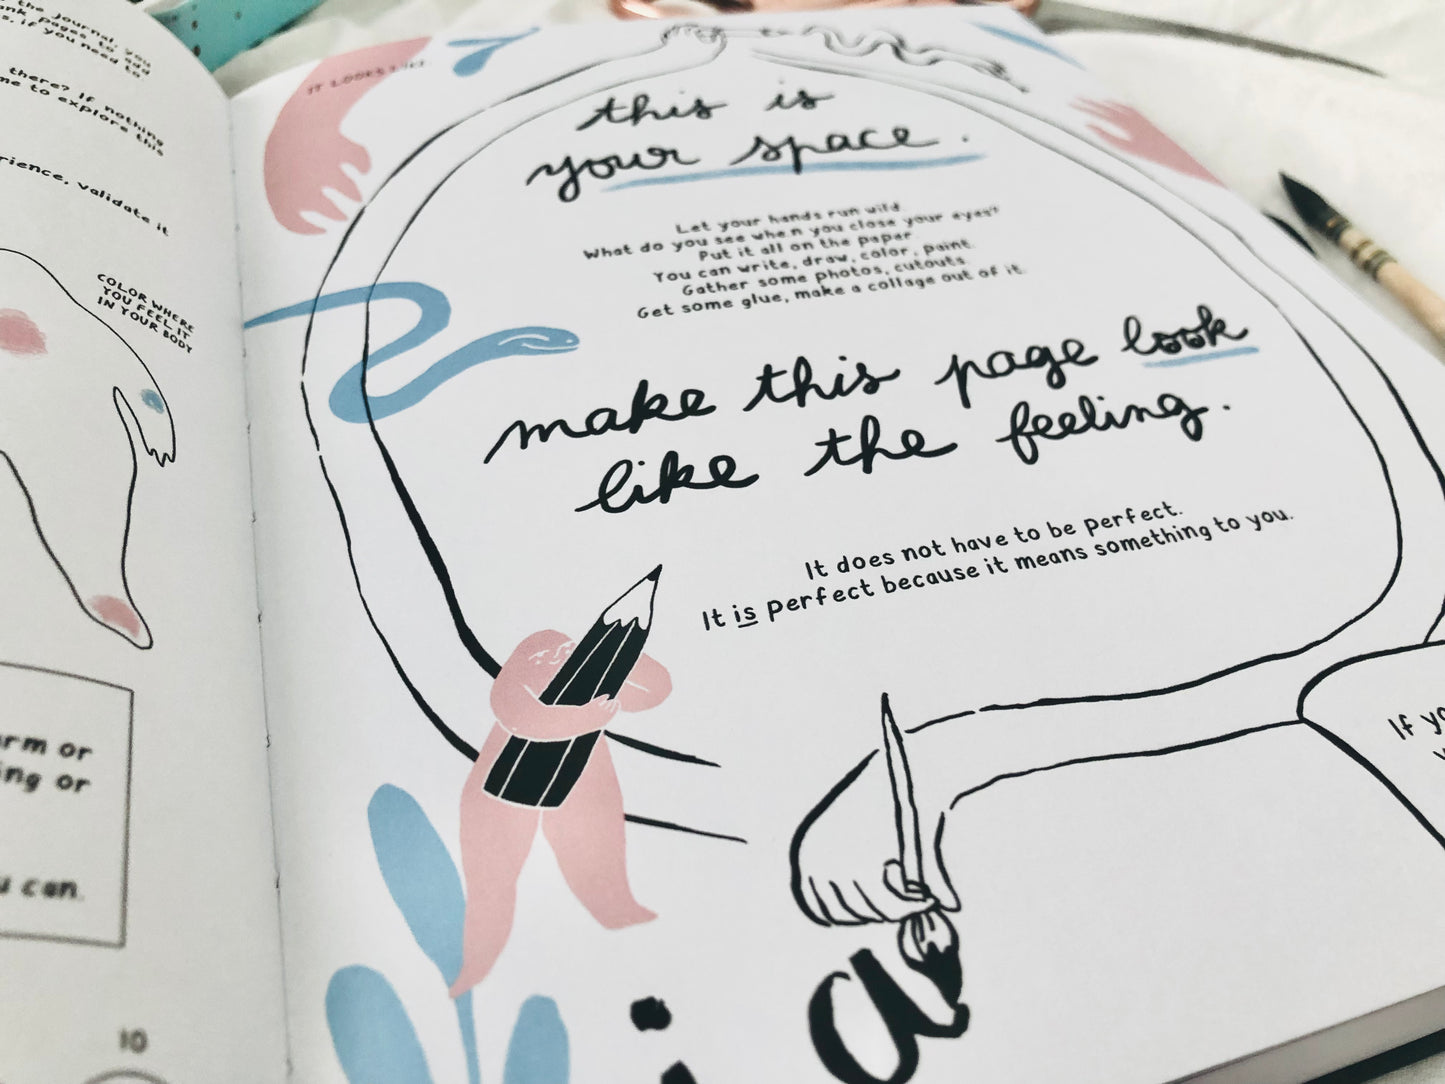 the journal, you
pages to add
if you need to.
there? If nothing
me to explore this
validate it
COLOR WHERE
YOU FEEL IT
IN YOUR BODY
or
or
can.
10
IT LOOKS LIKE
this is
your space.
Let your hands run wild.
What do you see when you close your eyes?
Put it all on the paper.
You can write, draw, color, paint.
Gather some photos, cutouts.
Get some glue, make a collage out of it.
make this page look
like the feeling.
It does not have to be perfect.
It is perfect because it means something to you.
If
a